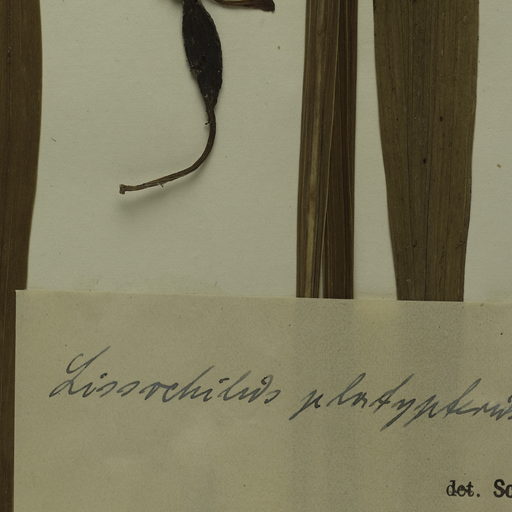 Lissochilus platypterus
det. Sc